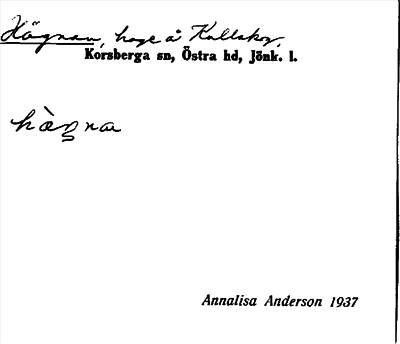 Högnan, hage å Kallskog.
Korsberga sn, Östra hd, Jönk. l.
hògna
Annalisa Anderson 1937